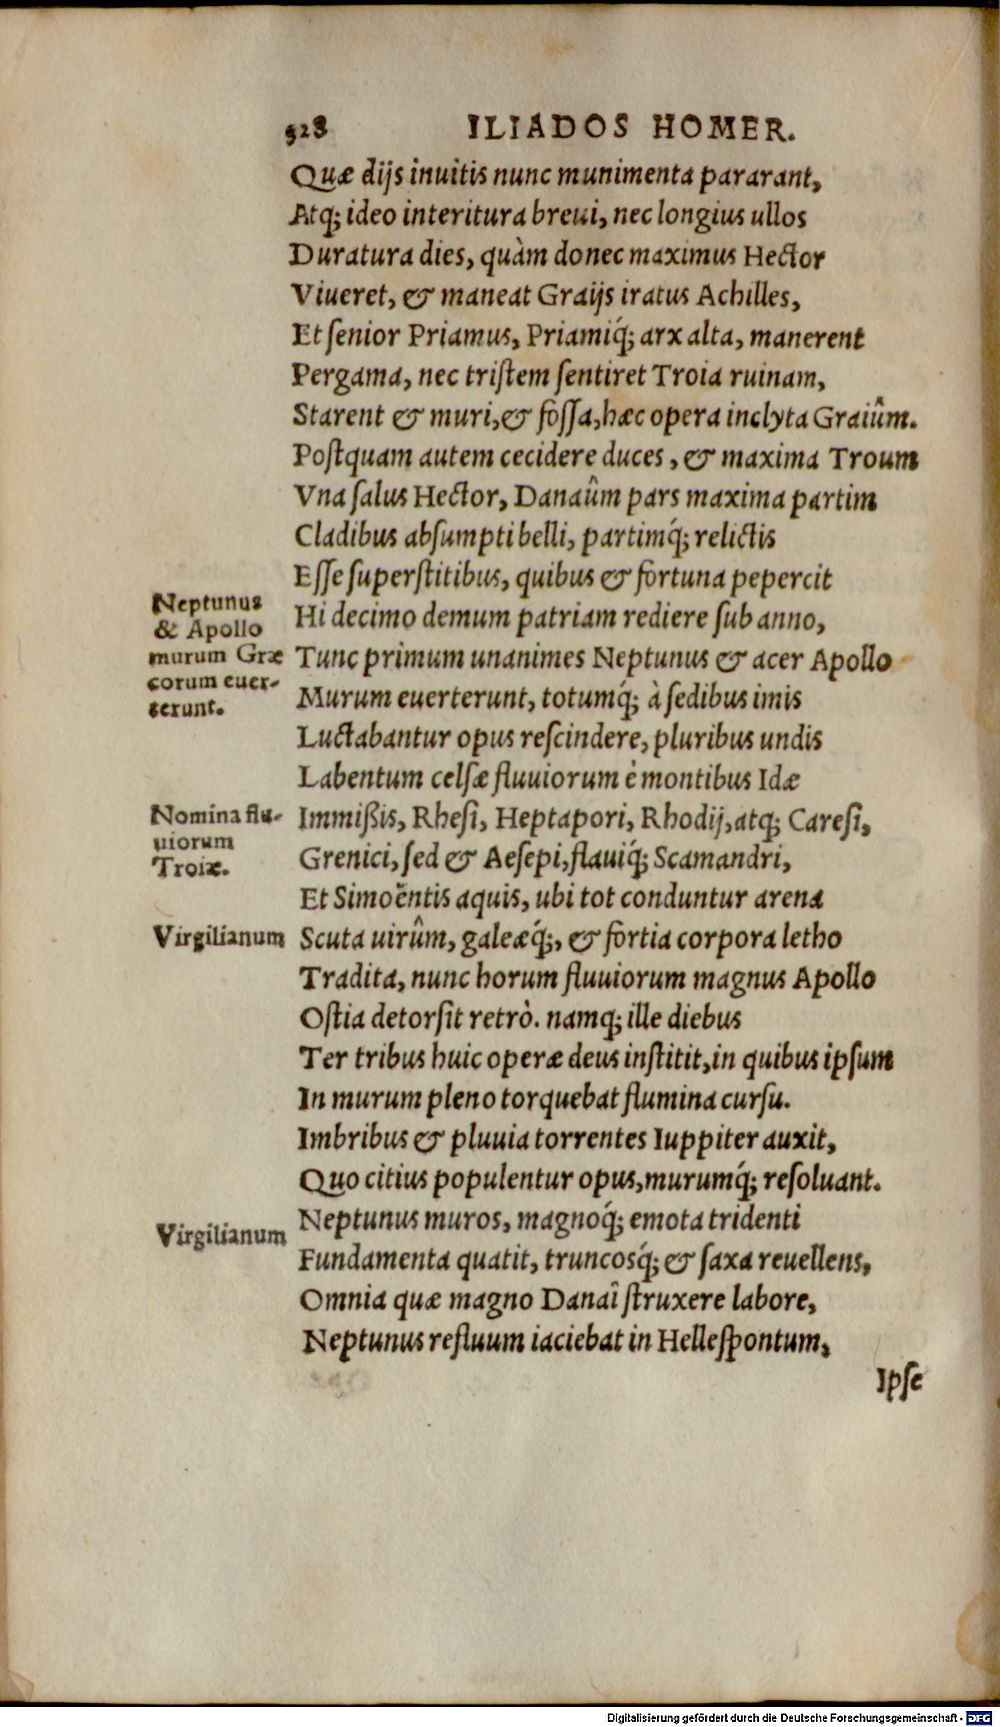 328 ILIADOS HOMER.
Quæ dijs inuitis nunc munimenta pararant,
Atq; ideo interitura breui, nec longius ullos
Duratura dies, quàm donec maximus Hector
Viueret, & maneat Graijs iratus Achilles,
Et ſenior Priamus, Priamiq́; arx alta, manerent
Pergama, nec triſtem ſentiret Troia ruinam,
Starent & muri, & foſſa, hæc opera inclyta Graiûm.
Poſtquam autem cecidere duces, & maxima Troum
Vna ſalus Hector, Danaûm pars maxima partim
Cladibus abſumpti belli, partimq́; relictis
Eſſe ſuperſtitibus, quibus & fortuna pepercit
Neptunus
& Apollo
murum Græ
corum euer-
terunt.
Hi decimo demum patriam rediere ſub anno,
Tunc primum unanimes Neptunus & acer Apollo
Murum euerterunt, totumq́; à ſedibus imis
Luctabantur opus reſcindere, pluribus undis
Labentum celſæ fluuiorum è montibus Idæ
Nomina flu-
uiorum
Troiæ.
Immißis, Rheſi, Heptapori, Rhodij, atq; Careſi,
Grenici, ſed & Aeſepi, flauiq́; Scamandri,
Et Simoëntis aquis, ubi tot conduntur arena
Virgilianum
Scuta uirûm, galeæq́;, & fortia corpora letho
Tradita, nunc horum fluuiorum magnus Apollo
Oſtia detorſit retrò. namq; ille diebus
Ter tribus huic operæ deus inſtitit, in quibus ipſum
In murum pleno torquebat flumina curſu.
Imbribus & pluuia torrentes Iuppiter auxit,
Quo citius populentur opus, murumq́; reſoluant.
Virgilianum
Neptunus muros, magnoq́; emota tridenti
Fundamenta quatit, truncosq́; & ſaxa reuellens,
Omnia quæ magno Danai ſtruxere labore,
Neptunus refluum iaciebat in Helleſpontum,
Ipſe
Digitalisierung gefördert durch die Deutsche Forschungsgemeinschaft - DFG